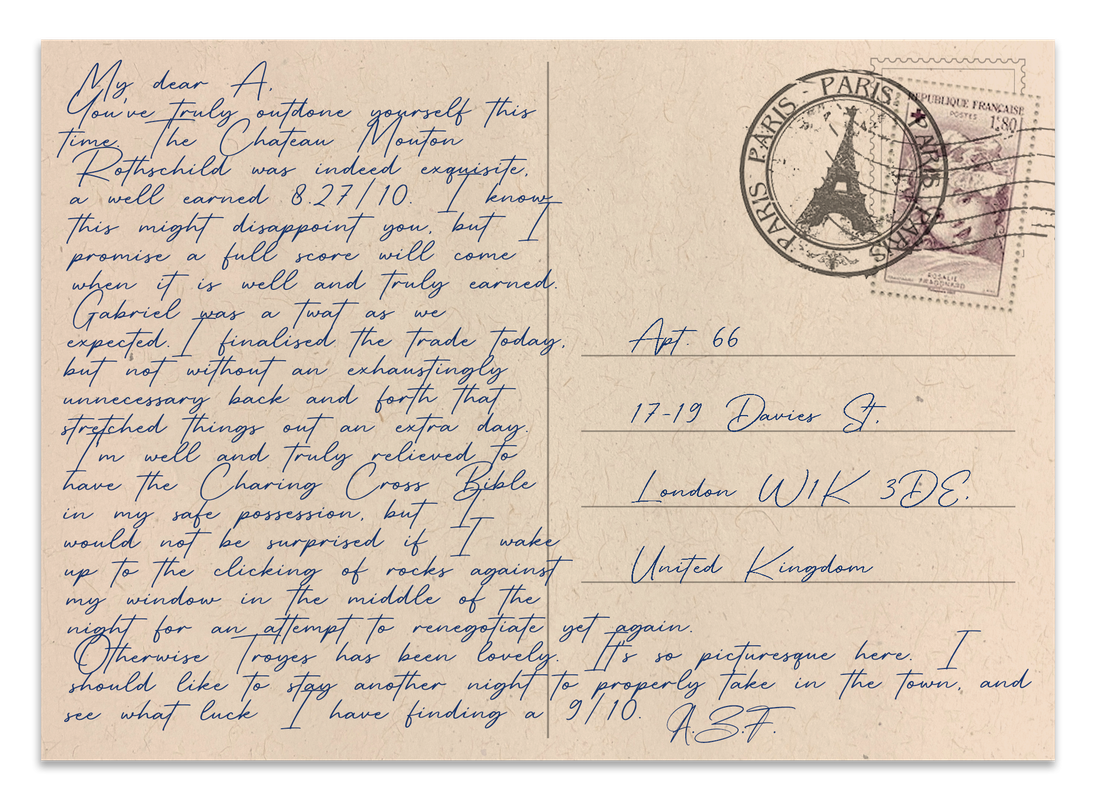 My dear A,
You've truly outdone yourself this
time. The Chateau Mouton
Rothschild was indeed exquisite,
a well earned 8.27/10. I know
this might disappoint you, but I
promise a full score will come
when it is well and truly earned.
Gabriel was a twat as we
expected. I finalised the trade today,
but not without an exhaustingly
unnecessary back and forth that
stretched things out an extra day.
I'm well and truly relieved to
have the Charing Cross Bible
in my safe possession, but I
would not be surprised if I wake
up to the clicking of rocks against
my window in the middle of the
night for an attempt to renegotiate yet again.
Otherwise Troyes has been lovely. It's so picturesque here. I
should like to stay another night to properly take in the town, and
see what luck I have finding a 9/10.
A.Z.F.
PARIS - PARIS PARIS PARIS PARIS PARIS
REPUBLIQUE FRANÇAISE
POSTES
1.80
ROSALIE
FRAGONARD
Apt. 66
17-19 Davies St,
London W1K 3DE,
United Kingdom